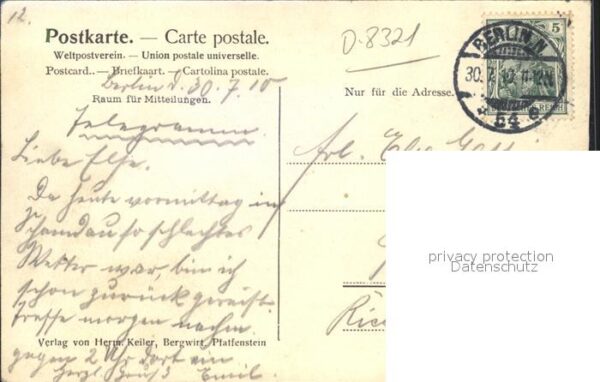 12.
Postkarte. — Carte postale.
Weltpostverein. — Union postale universelle.
Postcard. — Briefkaart. — Cartolina postale.
Berlin d. 30.7.10
Raum für Mitteilungen.
Telegramm.
Liebe Else.
Da heute vormittag in
Schandau so schlechtes
Wetter war, bin ich
schon zurück gereist.
treffe morgen nachm.
Verlag von Herm. Keiler, Bergwirt, Pfaffenstein
gegen 2 Uhr dort ein
Herzl. Gruß Emil.
D-8321
5
BERLIN N.
30.7.10.11-12N.
54 e
REICH
Nur für die Adresse.
Frl. Else
privacy protection
Datenschutz